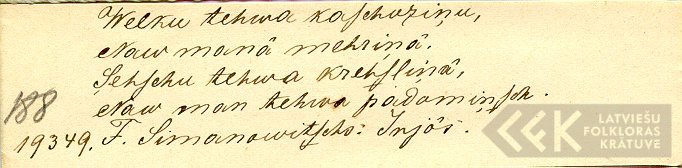 Welku tehwa kaschoziņu,
Naw manâ mehriņâ.
Sehschu tehwa krehslinâ,
Naw man tehwa padomiņsch.
188
19349. F. Simanowitschs: Injôs.
LATVIEŠU
FOLKLORAS
KRĀTUVE